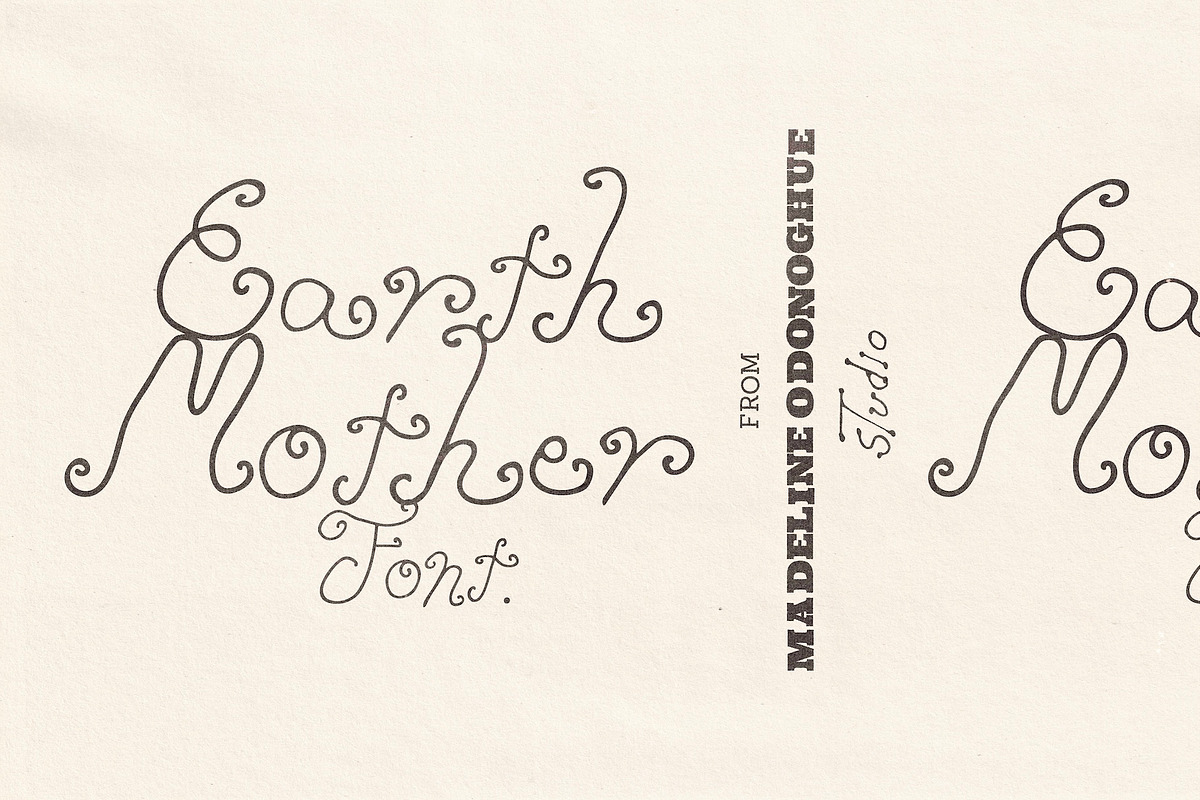 Earth
Mother
Font.
FROM
MADELINE ODONOGHUE
STudio
Ea
Mo